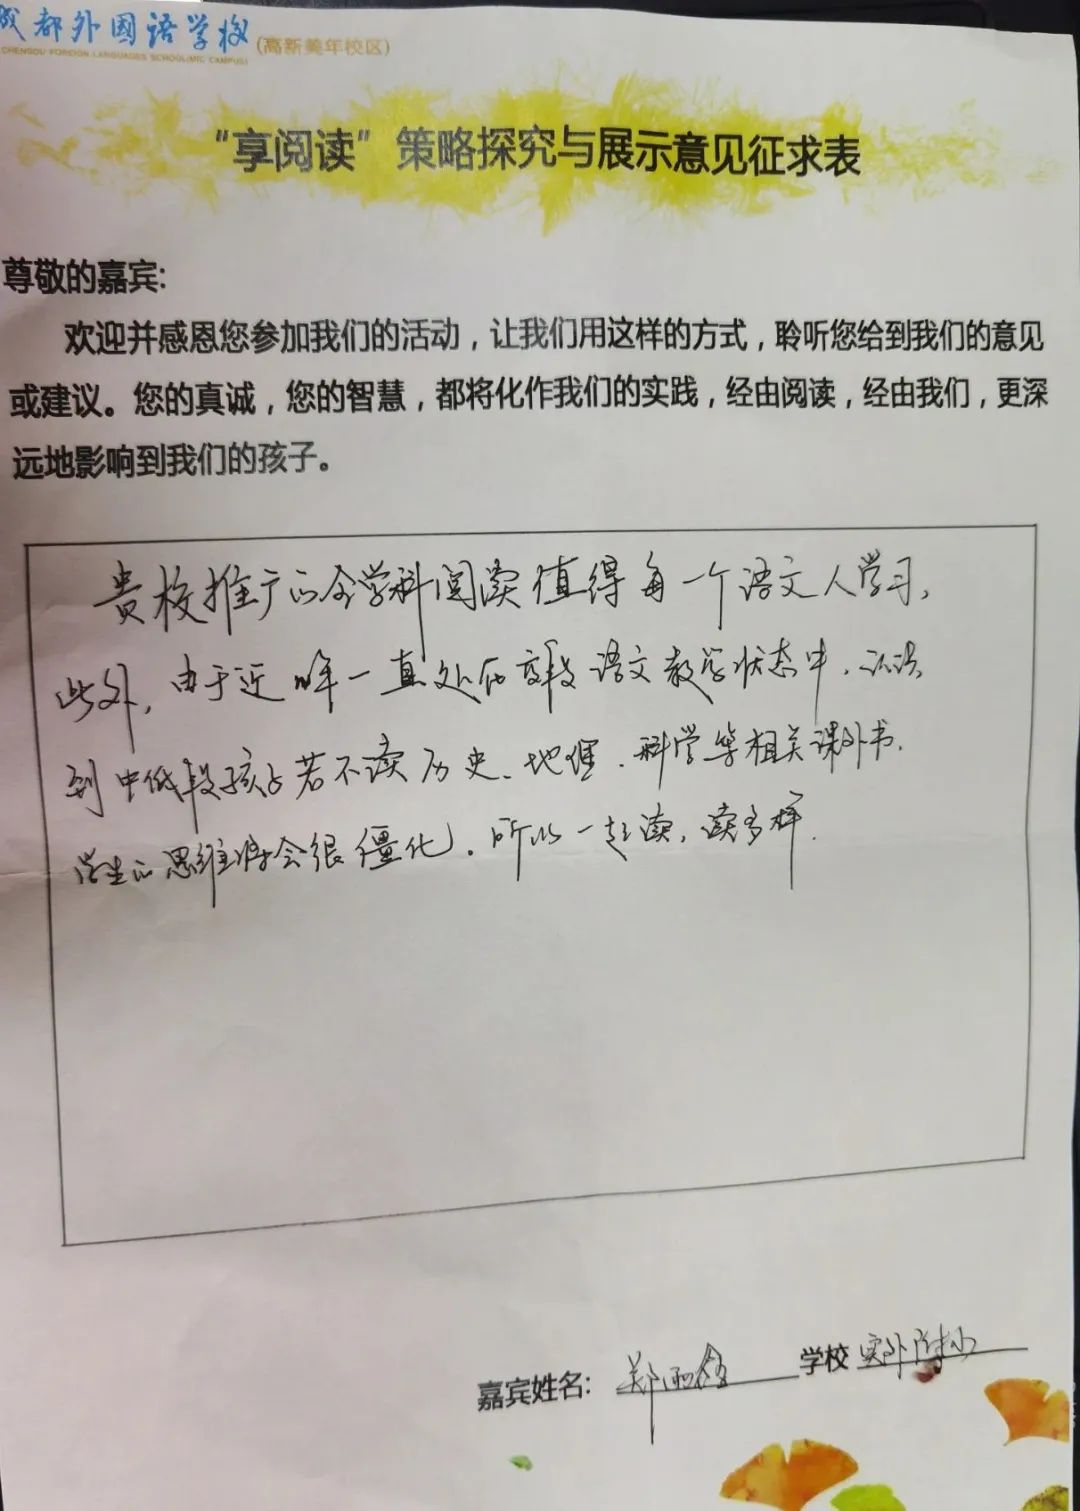 成都外国语学校(高新美年校区)
CHENGDU FOREIGN LANGUAGES SCHOOL(MIC CAMPUS)
“享阅读”策略探究与展示意见征求表
尊敬的嘉宾:
欢迎并感恩您参加我们的活动，让我们用这样的方式，聆听您给到我们的意见
或建议。您的真诚，您的智慧，都将化作我们的实践，经由阅读，经由我们，更深
远地影响到我们的孩子。
贵校推广的全学科阅读值得每一个语文人学习，
此外，由于近 一直处在高段语文教学状态中，认识
到中低段孩子若不读历史、地理、科学等相关课外书，
学生的思维将会很僵化。所以一起读，读多样．
嘉宾姓名: 郑雨 学校 实外附小